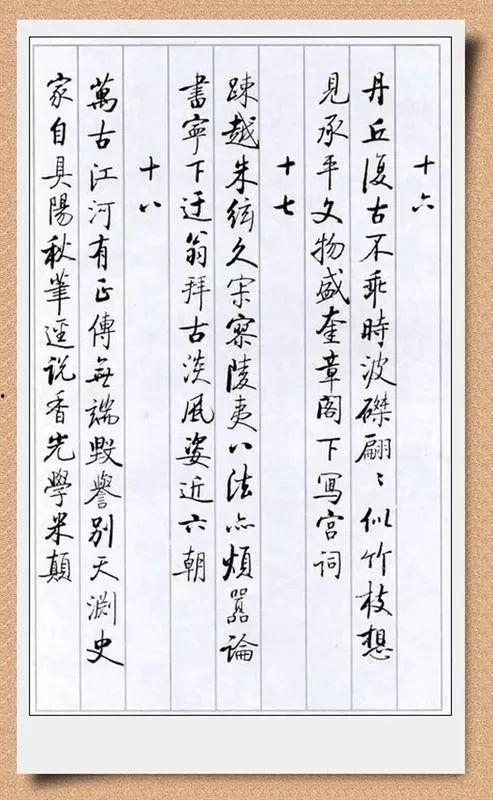 十六
丹丘復古不乖時波磔翩〻似竹枝想
見承平文物盛奎章閣下写宫词
十七
疎越朱弦久寂寥陵夷八法亦煩囂論
書寧下迂翁拜古淡風姿近六朝
十八
萬古江河有正傳無端毀譽別天淵史
家自具陽秋筆逕说香光學米顛